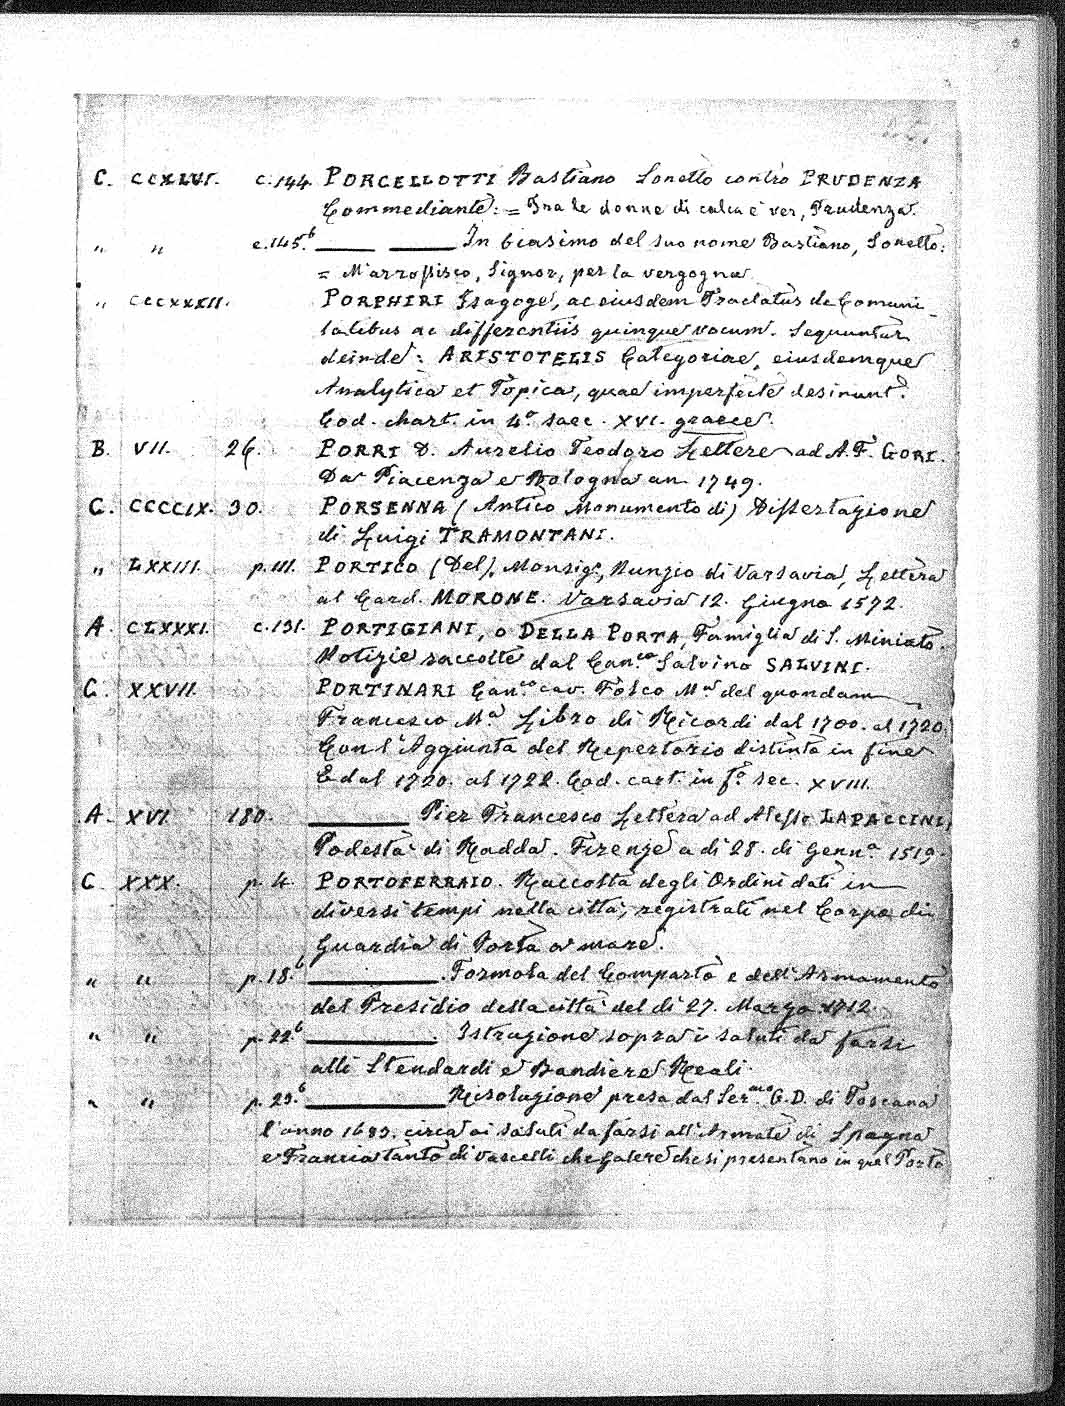 C. CCXLVI. c. 144. PORCELLOTTI Bastiano Sonetto contro PRUDENZA
Commediante: = Fra le donne di calca è ver, Prudenza.
" " c. 145.b ____ ____ In biasimo del suo nome Bastiano, Sonetto:
= M'arrossisco, Signor, per la vergogna
" CCCXXXII. PORPHIRI Isagoge, ac eiusdem Tractatus de Comuni_
tatibus ac differentiis quinque vocum. Sequuntur
deinde: ARISTOTELIS Categoriae, eiusdemque
Analytica et Topica, quae imperfecte desinunt.
Cod. chart. in 4.o saec. XVI. graece.
B. VII. 26. PORRI D. Aurelio Teodoro Lettere ad A. F. GORI.
Da Piacenza e Bologna an. 1749.
C. CCCCIX. 30. PORSENNA (Antico Monumento di) Dissertazione
di Luigi TRAMONTANI.
" LXXIII. p. 111. PORTICO (Del), Monsig.e, Nunzio di Varsavia, Lettera
al Card. MORONE. Varsavia 12. Giugno 1572.
A. CLXXXI. c. 131. PORTIGIANI, o DELLA PORTA, Famiglia di S. Miniato.
Notizie raccolte dal Can.co Salvino SALVINI.
C. XXVII. PORTINARI Can.co cav. Folco M.a del quondam
Francesco M.a Libro di Ricordi dal 1700. al 1720.
Con l'Aggiunta del Repertorio distinto in fine
E dal 1720. al 1722. Cod. cart. in f.o sec. XVIII.
A. XVI. 180. ____ Pier Francesco Lettera ad Alesso LAPACCINI,
Podestà di Radda. Firenze a di 28. di Genn.o 1519.
C. XXX. p. 4. PORTOFERRAIO. Raccolta degli Ordini dati in
diversi tempi nella città, registrati nel Corpo di
Guardia di Porta a mare.
" " p. 18.b ____. Formola del Comparto e dell'Armamento
del Presidio della città del dì 27. Marzo 1712.
" " p. 22.b ____. Istruzione sopra i saluti da farsi
alli Stendardi e Bandiere Reali.
" " p. 23.b ____ Risoluzione presa dal Ser.mo G. D. di Toscana
l'anno 1683. circa ai saluti da farsi all'Armate di Spagna
e Francia tanto di vascelli che Galere che si presentano in quel Porto